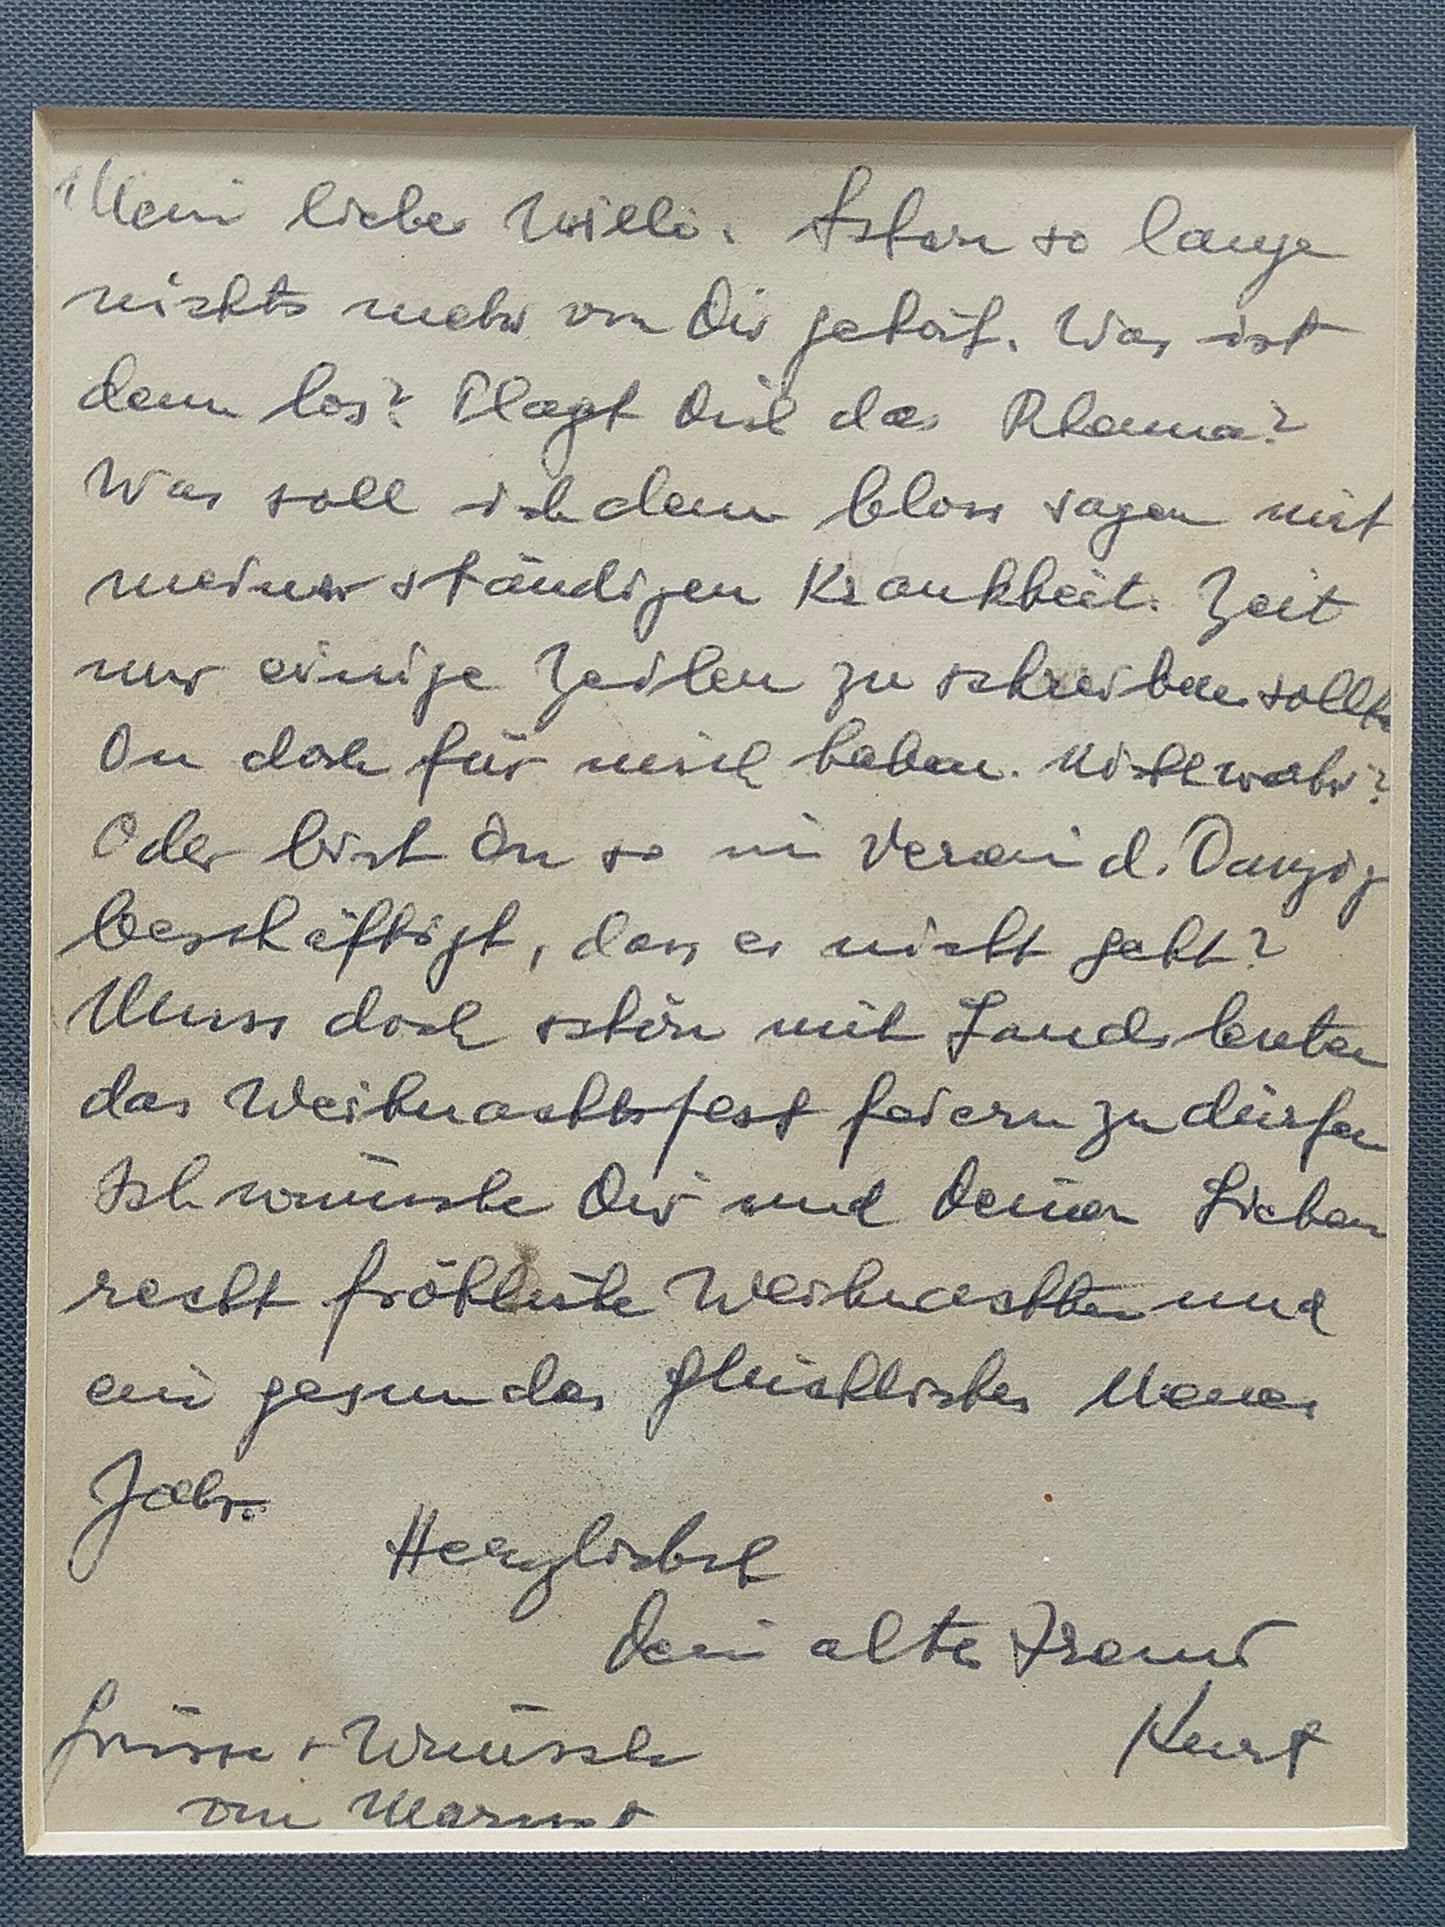 Mein lieber Willi. Schon so lange
nichts mehr von Dir gehört. Was ist
denn los? Plagt Dich das Rheuma?
Was soll ich denn bloss sagen mit
meiner ständigen Krankheit. Zeit
nur einige Zeilen zu schreiben sollte
Du doch für mich haben. Nicht wahr?
Oder bist Du so im Verein d. Danzig
beschäftigt, dass es nicht geht?
Muss doch schön mit Landsleuten
das Weihnachtsfest feiern zu dürfen
Ich wünsche Dir und Deinen Lieben
recht fröhliche Weihnachten und
ein gesundes glückliches Neues
Jahr.
Herzlichst
Dein alter Freund
Kurt
Grüsse + Wünsche
von